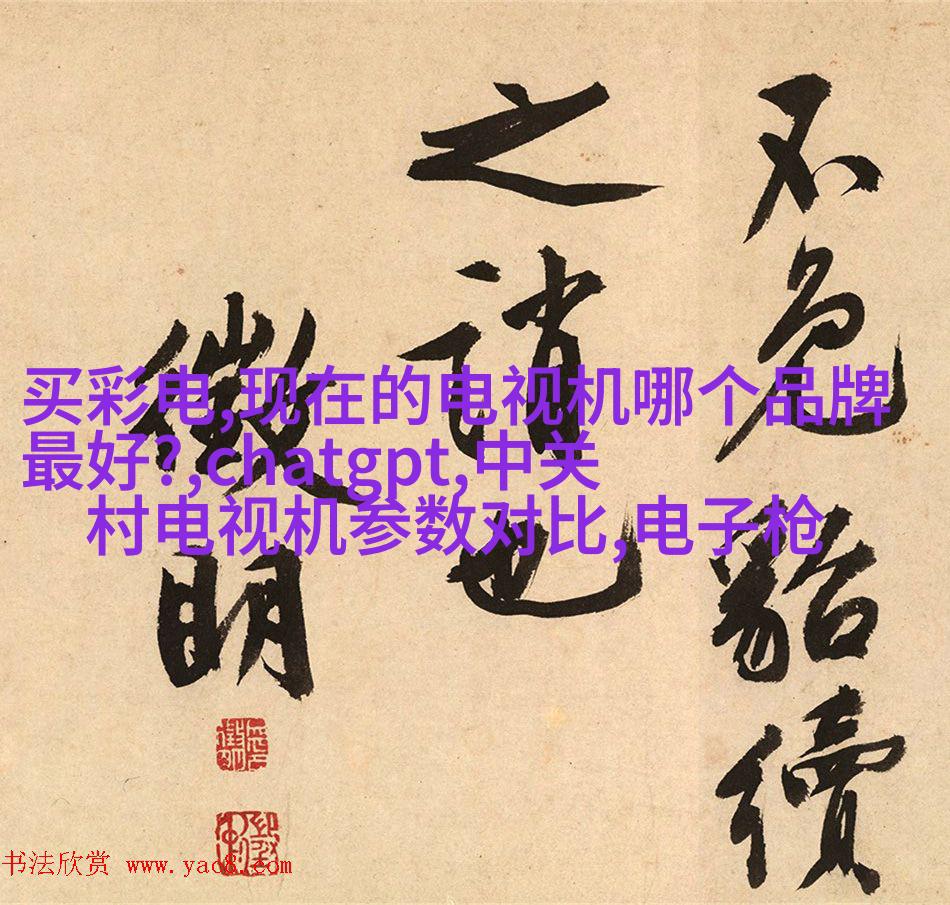 不免貂續
之誚也
徵明
买彩电,现在的电视机哪个品牌
最好?,chatgpt,中关
村电视机参数对比,电子枪
书法欣赏 www.yac8.com